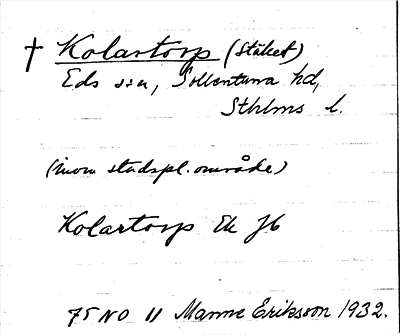 † Kolartorp (Stäket)
Eds sn, Sollentuna hd,
Sthlms l.
(inom stadspl. område)
Kolartorp Ek Jb
75 NO 11 Manne Eriksson 1932.